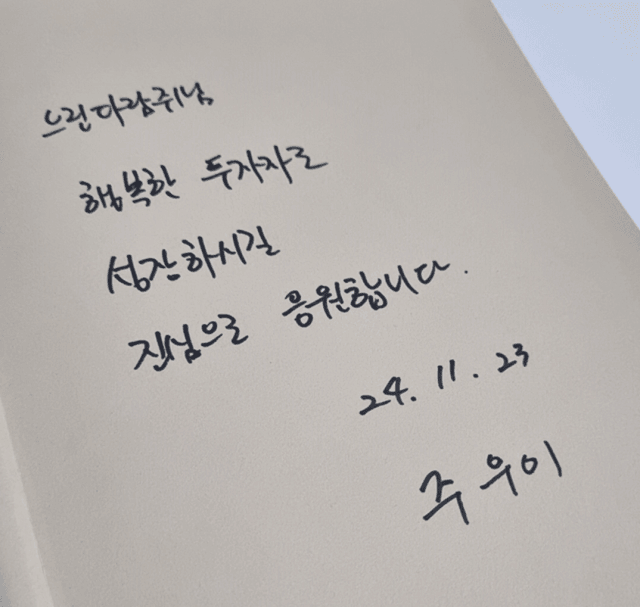 느린다람쥐님
행복한 투자자로
성장하시길
진심으로 응원합니다.
24. 11. 23
주우이